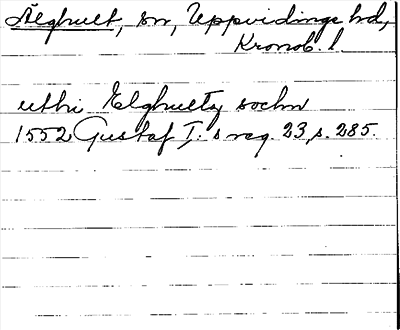 Älghult, sn, Uppvidinge hd,
Kronob. l.
uthi Elghultz sochn
1552 Gustaf I:s reg. 23, s. 285.